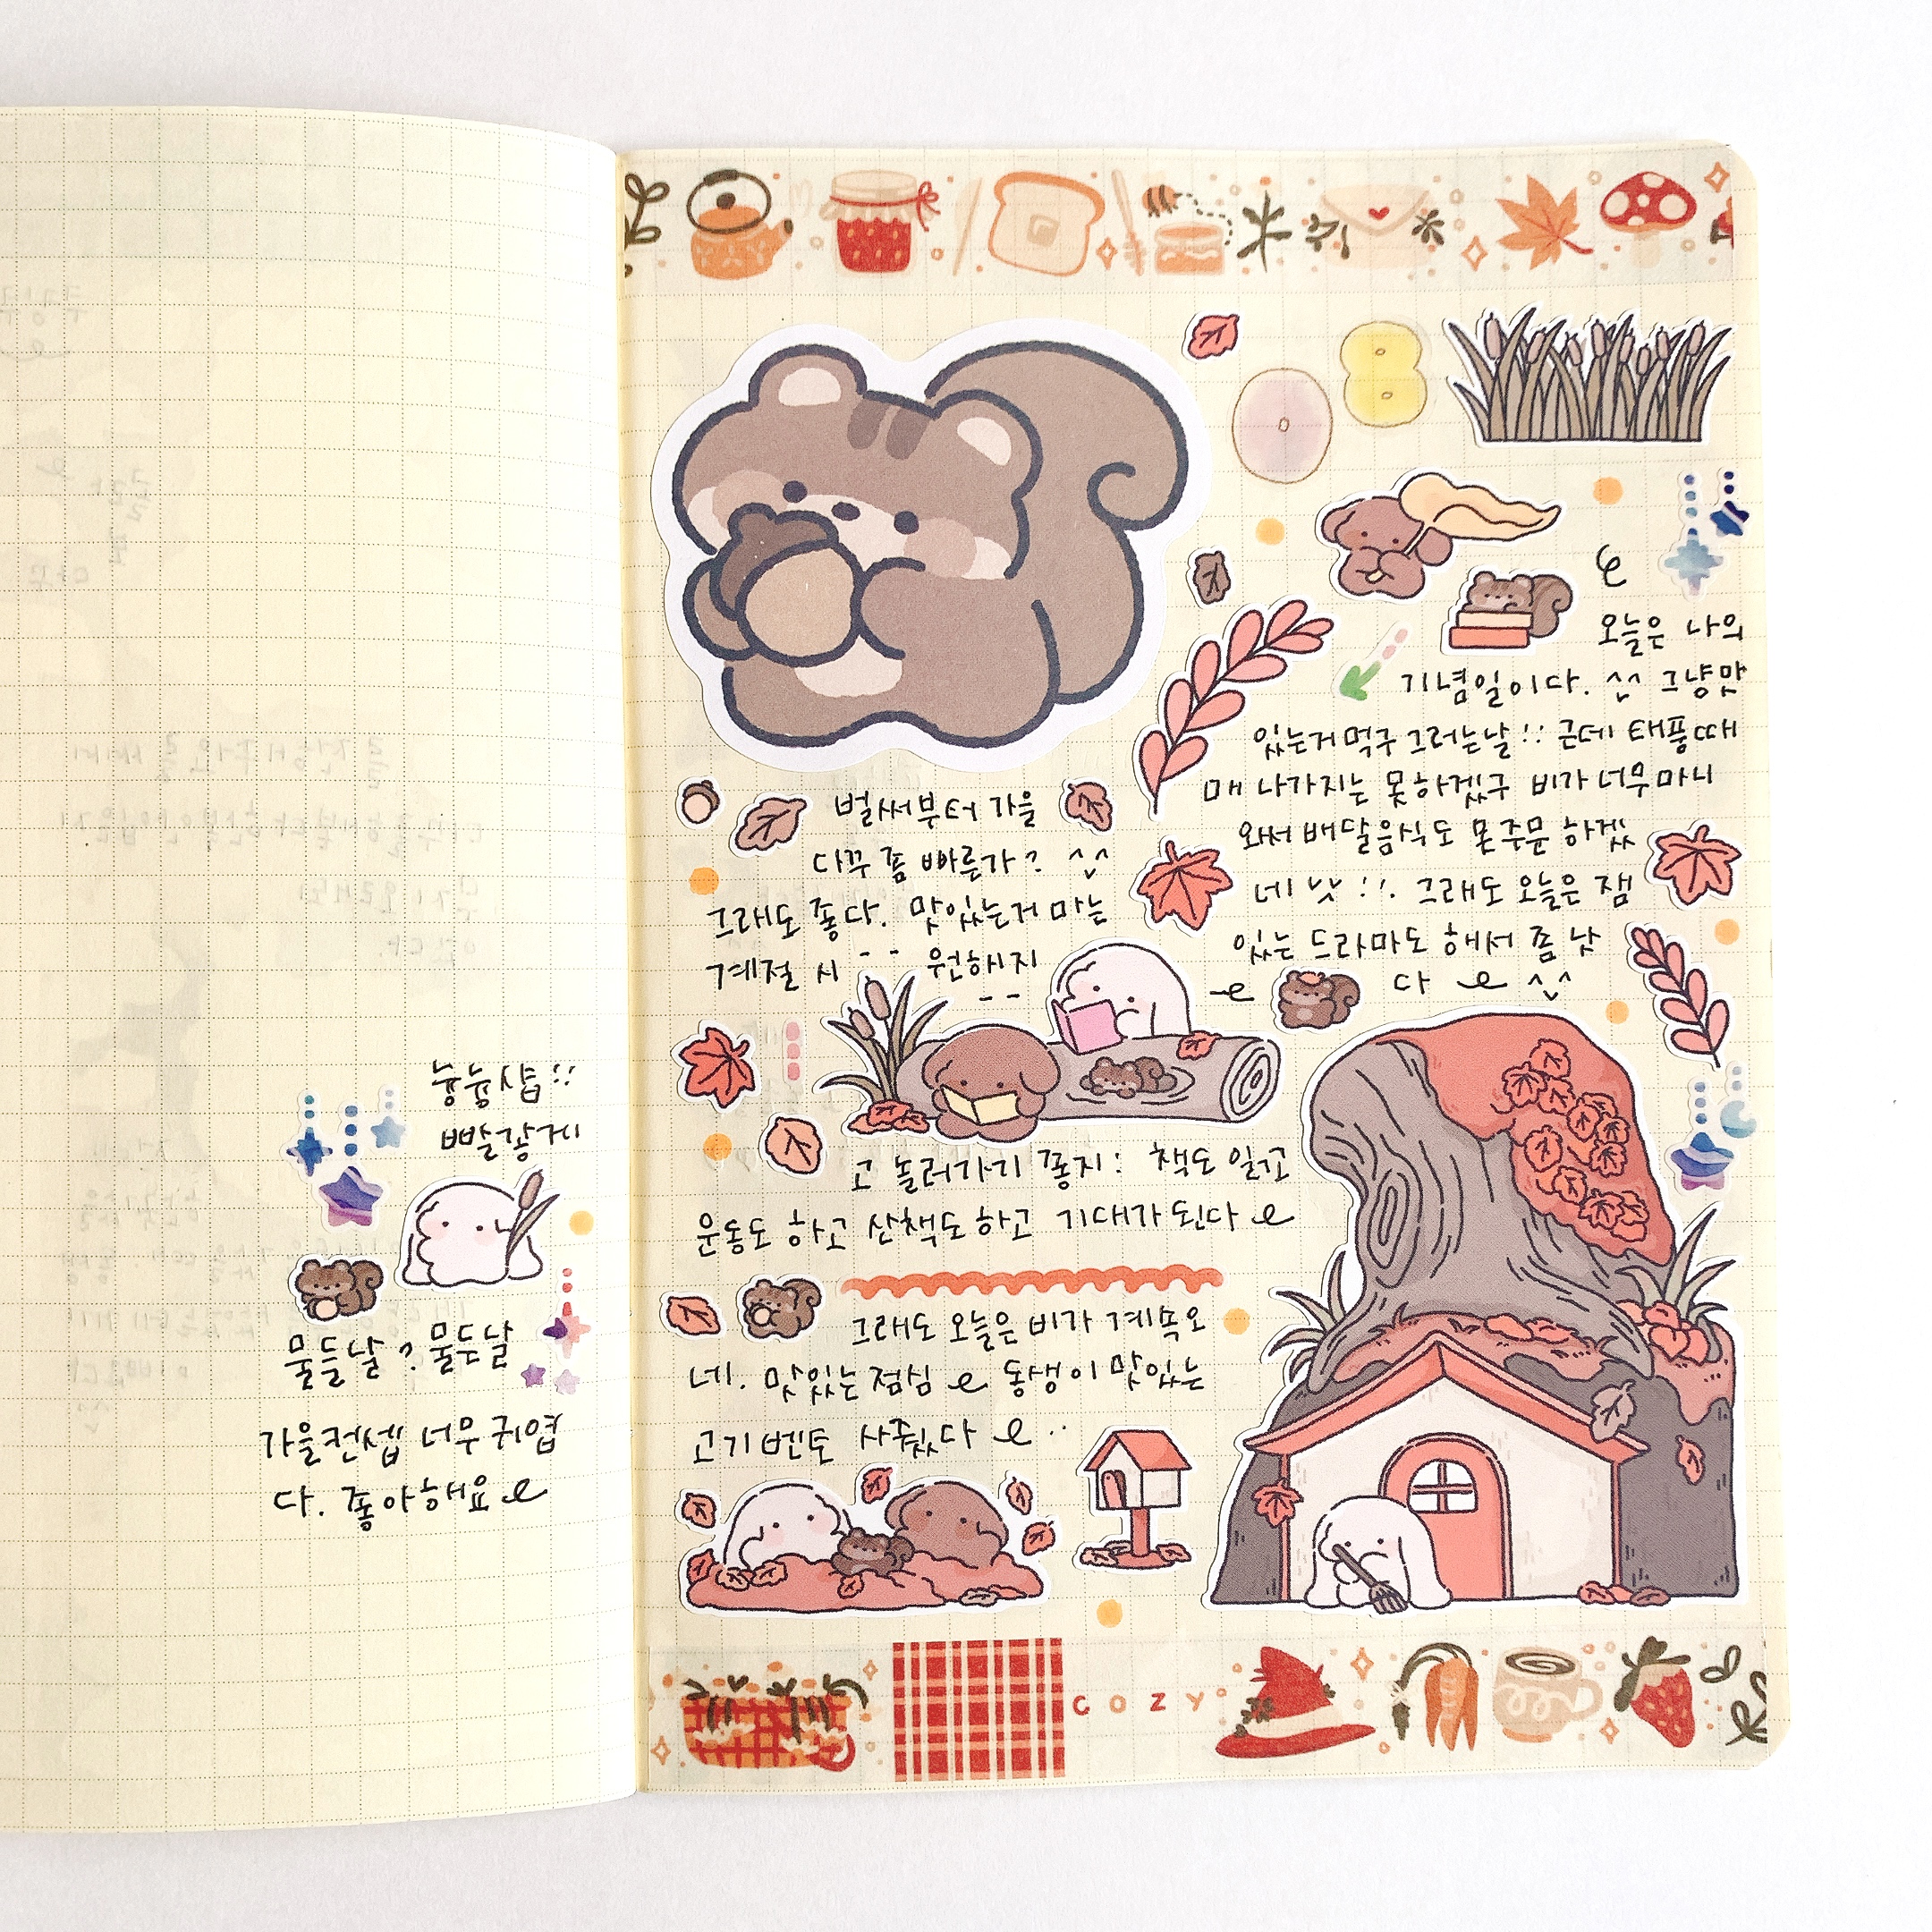 늉늉십::
빨갛게
물들날? 물드날
가을컨셉 너무 귀엽
다. 좋아해요
08
오늘은 나의
기념일이다. ^^ 그냥맛
있는거먹구 그러는날!! 근데 태풍때
매 나가지는 못하겠구 비가 너무마니
와서 배달음식도 못주문 하겠
네 !!. 그래도 오늘은 잼
있는 드라마도 해서 쫌 낫
다 ^^
벌써부터 가을
다꾸 쫌 빠른가? ^^
그래도 좋다. 맛있는거 마는
계절 시-- 원해지
--
고 놀러가기 쫗지: 책도 일고
운동도 하고 산책도하고 기대가된다
그래도 오늘은 비가 계속오
네. 맛있는점심 동생이 맛있는
고기벤또 사줬다 ..
COZY